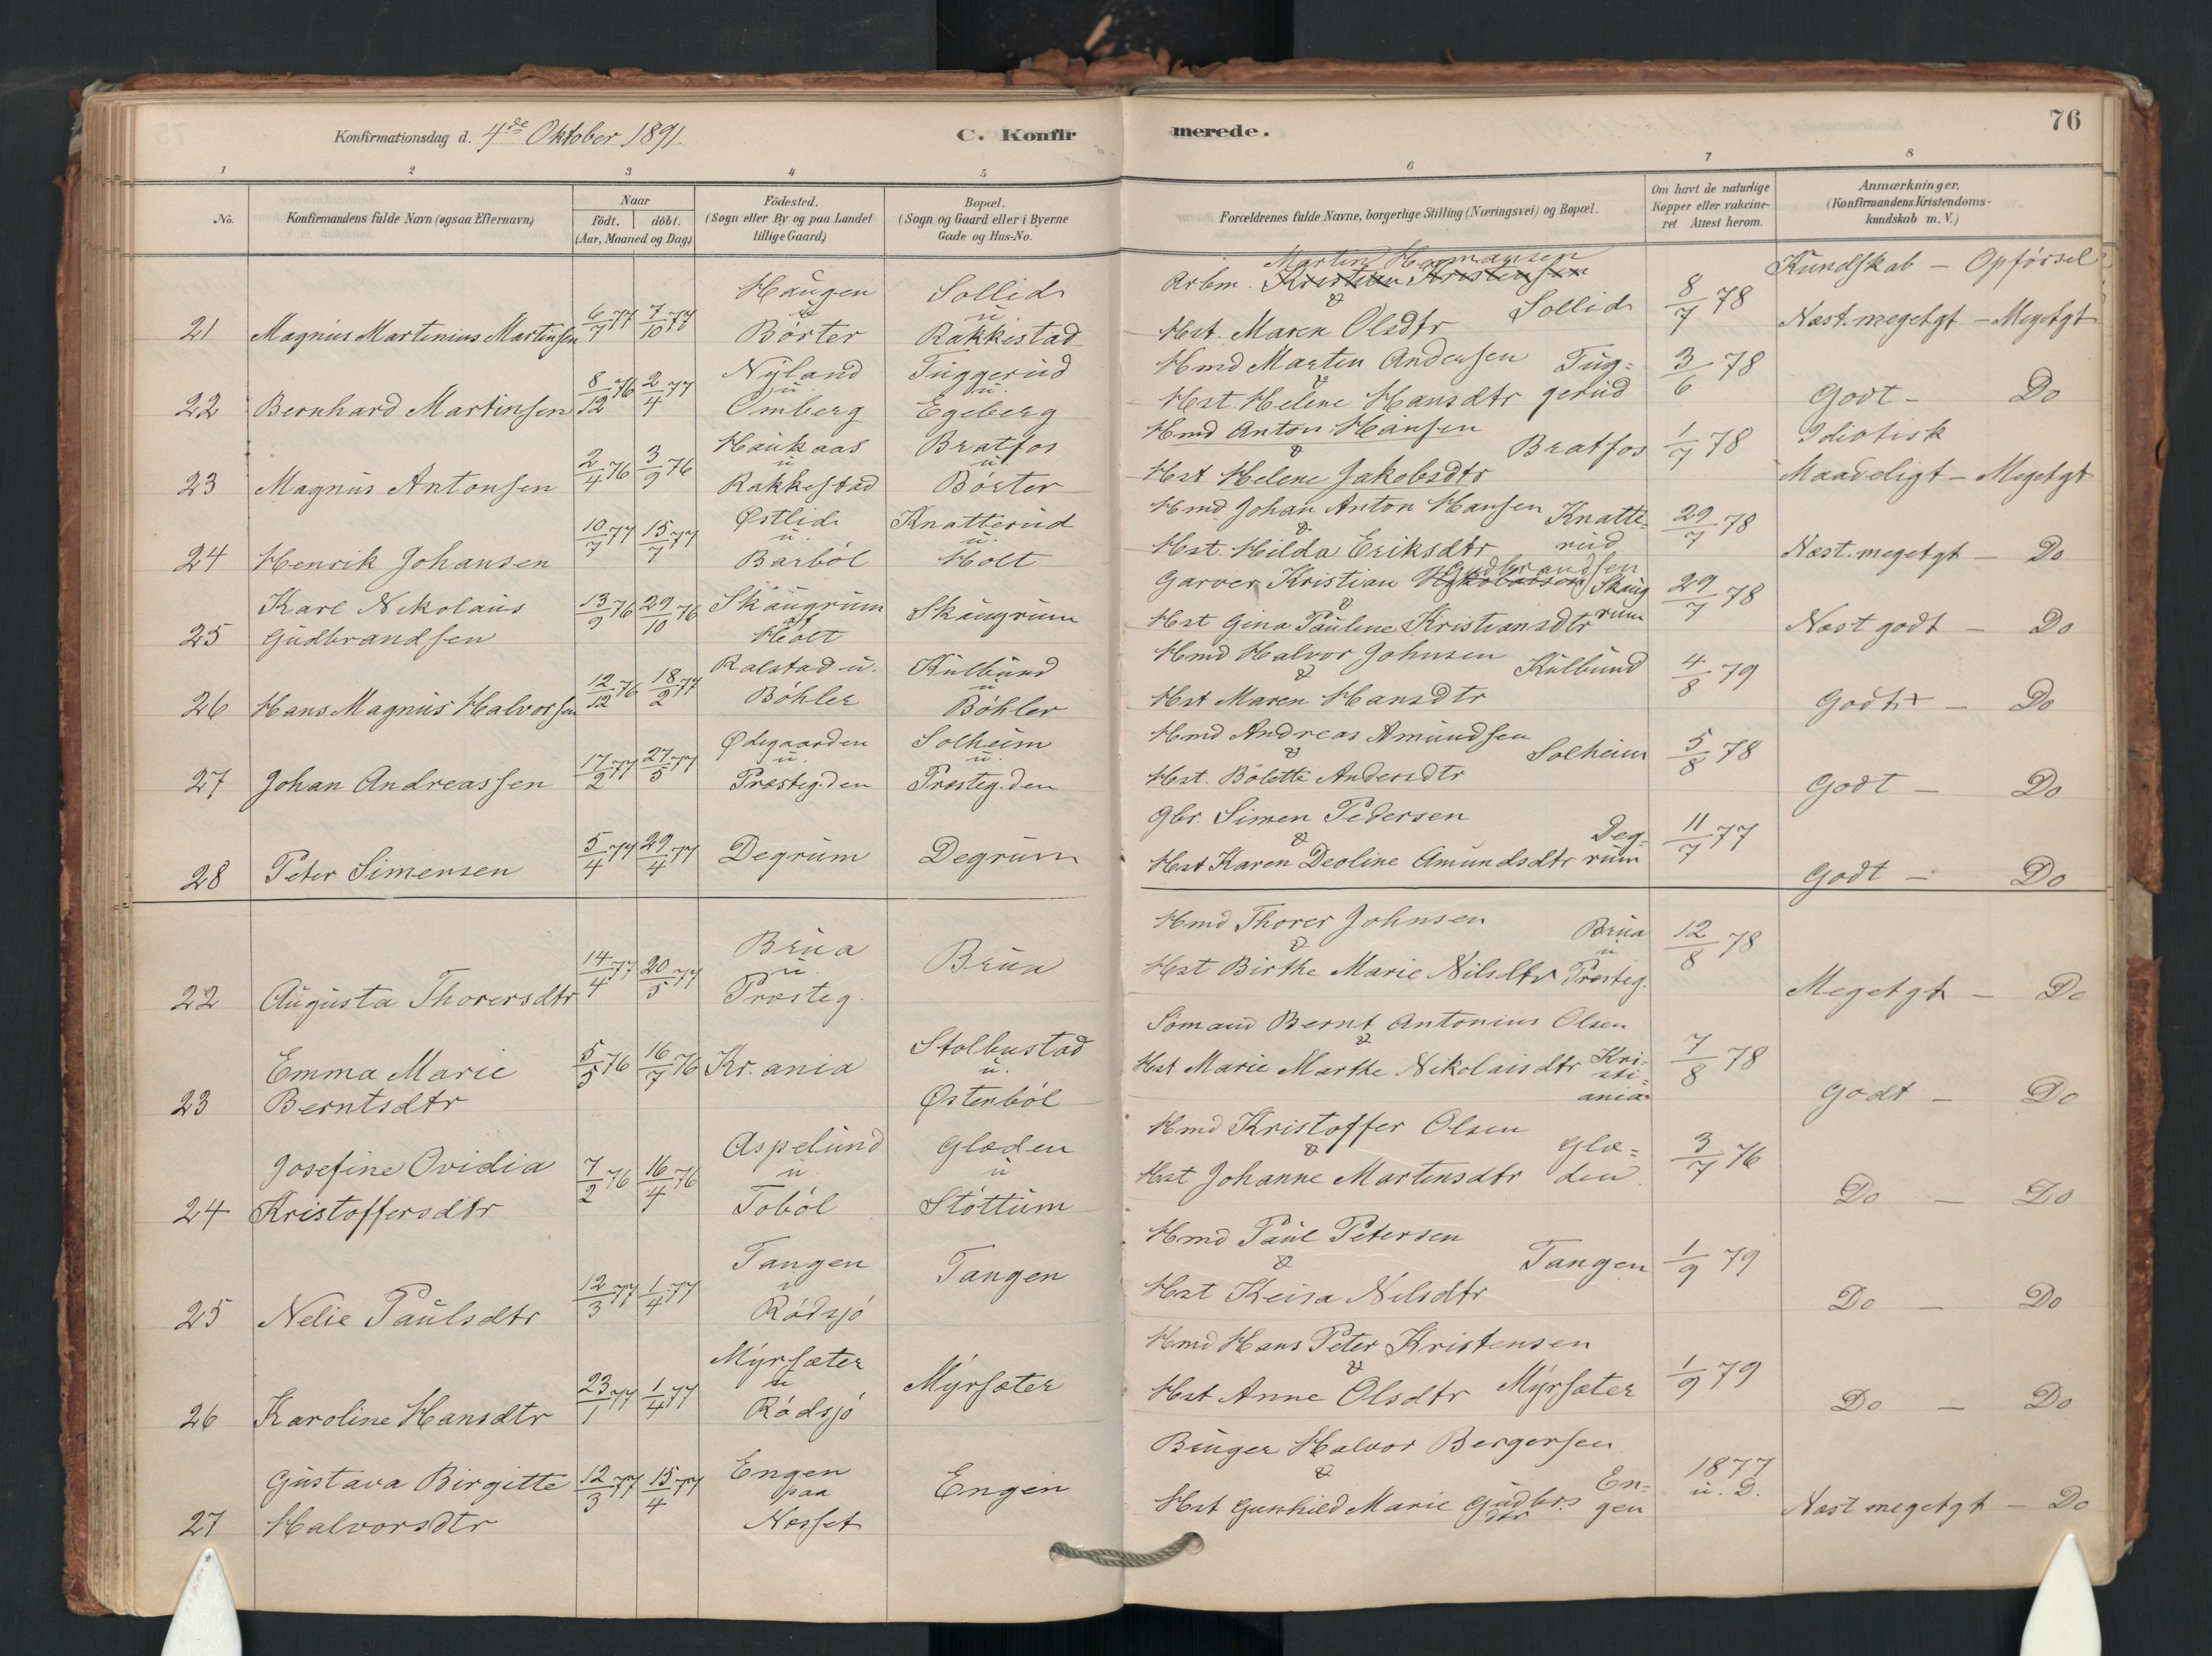 Konfirmationsdag d. 4de Oktober 1891.
C. Konfirmerede.
76
1 2 3 4 5 6 7 8
No.
Konfirmandens fulde Navn (ogsaa Efternavn)
Naar födt. döbt. (Aar, Maaned og Dag)
Födested. (Sogn eller By og paa Landet tillige Gaard)
Bopæl. (Sogn og Gaard eller i Byerne Gade og Hus-No.
Forældrenes fulde Navne, borgerlige Stilling (Næringsvei) og Bopæl.
Om havt de naturlige Kopper eller vakcineret. Attest herom.
Anmærkninger, (Konfirmandens Kristendomskundskab m. V.)
Kundskab – Opförsel
21 Magnus Martinius Martinsen 6/7 77 7/10 77 Haugen u Börter Sollid u Rakkestad Arbm. Kristian Kristensen Martin Hermansen & Hst. Maren Olsdtr Sollid 8/7 78 Næst. megetgt – Megetgt
22 Bernhard Martinsen 8/12 76 2/4 77 Nyland u Omberg Tuggerud u. Egeberg Hmd Martin Andersen & Hst Helene Hansdtr Tuggerud 3/6 78 Godt – Do
23 Magnus Antonsen 2/4 76 3/9 76 Haukaas u Rakkestad Bratfos u Börter Hmd Anton Hansen & Hst Helene Jakobsdtr Bratfos 1/7 78 Idiotisk Maadeligt – Megetgt
24 Henrik Johansen 10/7 77 15/7 77 Østlid u. Barböl Knatterud u. Holt Hmd Johan Anton Hansen & Hst. Hilda Eriksdtr Knatterud 29/7 78 Næst. megetgt – Do
25 Karl Nikolaus Gudbrandsen 13/9 76 29/10 76 Skaugrum af Holt Skaugrum Garver Kristian Gudbrandsen & Hst Gina Pauline Kristiansdtr Skaugrum 29/7 78 Næst godt – Do
26 Hans Magnus Halvorsen 12/12 76 18/2 77 Ralstad u. Böhler Kulbund u Böhler Hmd Halvor Johnsen & Hst Maren Hansdtr Kulbund 4/8 79 Godt+ – Do
27 Johan Andreassen 17/2 77 27/5 77 Ødegaarden u. Præsteg.den Solheim u. Præsteg.den Hmd Andreas Amundsen & Hst. Bolette Andersdtr Solheim 5/8 78 Godt – Do
28 Peter Simensen 5/4 77 29/4 77 Degrum Degrum Gbr. Simen Pedersen & Hst Karen Deoline Amundsdtr Degrum 11/7 77 Godt – Do
22 Augusta Thorersdtr 14/4 77 20/5 77 Brua u. Præsteg. Brua Hmd Thorer Johnsen & Hst Birthe Marie Nilsdtr Brua u Præsteg. 12/8 78 Megetgt – Do
23 Emma Marie Berntsdtr 5/5 76 16/7 76 Kr.ania Stolbustad u. Østenböl Sömand Bernt Antonius Olsen & Hst. Marie Marthe Nikolaisdtr Kristiania 7/8 78 Godt – Do
24 Josefine Ovidia Kristoffersdtr 7/2 76 16/4 76 Aspelund u. Toböl Glæden u Stöttum Hmd Kristoffer Olsen & Hst Johanne Martensdtr Glæden 3/7 76 Do – Do
25 Nelie Paulsdtr 12/3 77 1/4 77 Tangen u Rödsjö Tangen Hmd Paul Petersen & Hst Keisa Nelsdtr Tangen 1/9 79 Do – Do
26 Karoline Hansdtr 23/1 77 1/4 77 Myrsæter u Rödsjö Myrsæter Hmd Hans Peter Kristensen & Hst Anne Olsdtr Myrsæter 1/9 79 Do – Do
27 Gustava Birgitte Halvorsdtr 12/3 77 15/4 77 Engen paa Næsset Engen Bruger Halvor Bergersen & Hst Gunhild Marie Gudbr.sdtr Engen 1877 u. D. Næst megetgt – Do